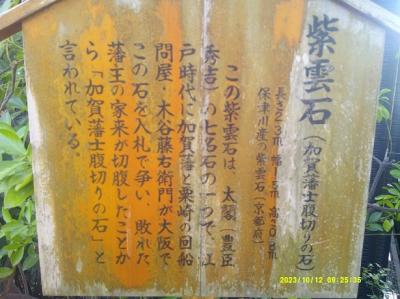 紫雲石(加賀藩士腹切りの石)
長さ2.3m 幅1.5m 高さ0.8m
保津川産の紫雲石(京都府)
この紫雲石は、太閤(豊臣
秀吉)の七名石の一つで、江
戸時代に加賀藩と粟崎の回船
問屋・木谷藤右衛門が大阪で
この石を入札で争い、敗れた
藩主の家来が切腹したことか
ら「加賀藩士腹切りの石」と
言われている。
2023/10/12 09:25:35